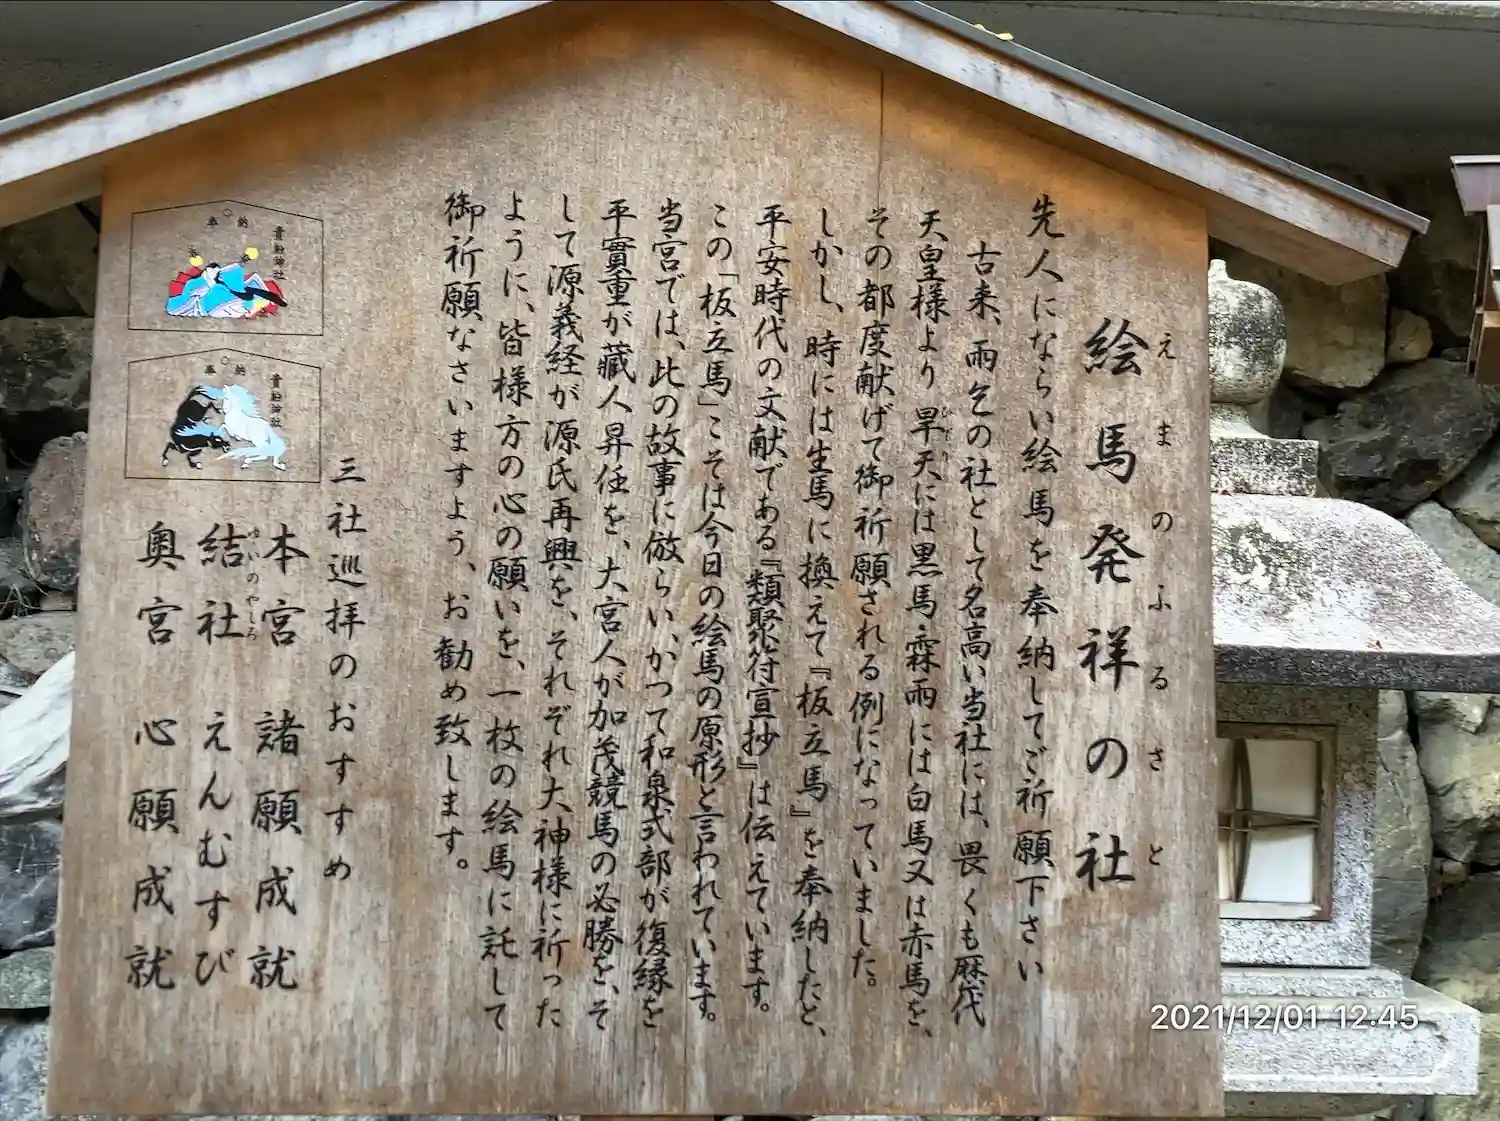 絵馬発祥の社
えまのふるさと
先人にならい絵馬を奉納してご祈願下さい
古来、雨乞の社として名高い当社には、畏くも歴代
天皇様より旱天には黒馬・霖雨には白馬又は赤馬を、
ひでり
その都度献げて御祈願される例になっていました。
しかし、時には生馬に換えて『板立馬』を奉納したと、
平安時代の文献である『類聚符宣抄』は伝えています。
この「板立馬」こそは今日の絵馬の原形と言われています。
当宮では、此の故事に倣らい、かつて和泉式部が復縁を
平實重が蔵人昇任を、大宮人が加茂競馬の必勝を、そ
して源義経が源氏再興を、それぞれ大神様に祈った
ように、皆様方の心の願いを、一枚の絵馬に託して
御祈願なさいますよう、お勧め致します。
三社巡拝のおすすめ
本宮 諸願成就
結社 えんむすび
ゆいのやしろ
奥宮 心願成就
奉納
貴船神社
奉納
貴船神社
2021/12/01 12:45